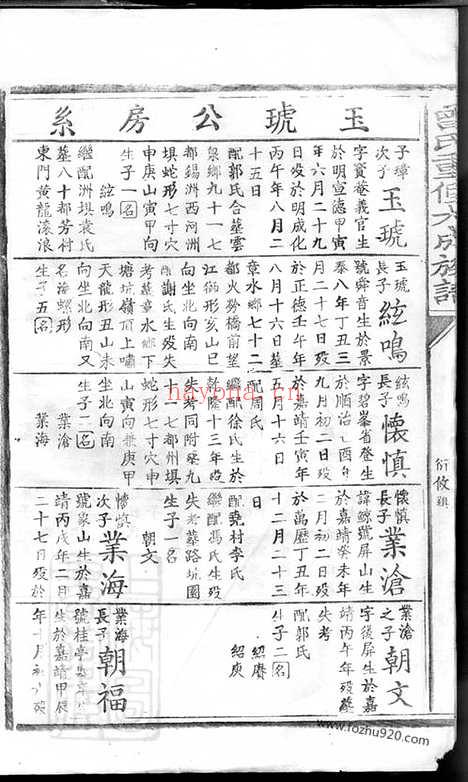 曾氏重修大成族譜
玉琥公房系
子璋
次子
玉琥
字實菴義官生
於明宣德甲寅
年六月二十九
日歿於明成化
丙午年八月二
十五日
配郭氏合墓雲
泉鄉九十一七
都錫洲西河洲
垻蛇形七寸穴
申庚山寅甲向
生子一名
絃鳴
繼配洲垻袁氏
墓八十都芳村
東門黃龍滾浪
玉琥
長子
絃鳴
號舜音生於景
泰八年丁丑三
月二十七日歿
於正德壬午年
八月十六日墓
章水鄉七十二
都火勞橋前望
江術形亥山巳
向
配謝氏生歿失
考墓章水鄉下
塘坑嶺頂上嘯
天龍形丑山未
向坐北向南又
名海螺形
生子五名
絃鳴
長子
懷慎
字碧峯省祭生
於順治乙酉年
九月初二日歿
於嘉靖壬寅年
五月十六日
配周氏
繼配徐氏生於
乾隆十三年歿
失考同附葬九
十一七都州垻
蛇形七寸穴申
山寅向兼庚甲
坐北向南
生子二名
業滄
業海
懷慎
長子
業滄
諱鯨號屏山生
於嘉靖癸未年
二月初二日歿
於萬歷丁丑年
十二月二十三
日
配堯村李氏
繼配馮氏生歿
失考墓路坑園
生子一名
朝文
懷慎
次子
業海
號象山生於嘉
靖丙戌年二月
二十七日歿於
業滄
之子
朝文
字後屏生於嘉
靖丙午年歿墓
失考
配郭氏
生子二名
紹賡
紹庚
業海
長子
朝福
號桂亭
生於嘉靖甲辰
年十月初
衍攸類
hayona.cn
www.fozhu920.com